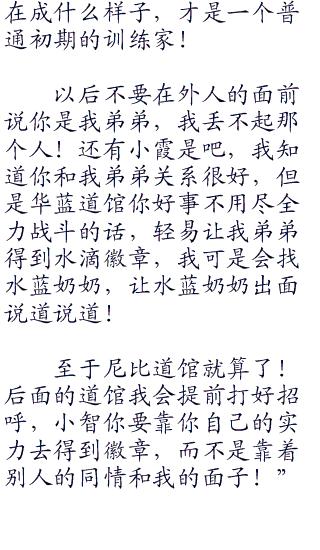 在成什么样子，才是一个普
通初期的训练家！
以后不要在外人的面前
说你是我弟弟，我丢不起那
个人！还有小霞是吧，我知
道你和我弟弟关系很好，但
是华蓝道馆你好事不用尽全
力战斗的话，轻易让我弟弟
得到水滴徽章，我可是会找
水蓝奶奶，让水蓝奶奶出面
说道说道！
至于尼比道馆就算了！
后面的道馆我会提前打好招
呼，小智你要靠你自己的实
力去得到徽章，而不是靠着
别人的同情和我的面子！”